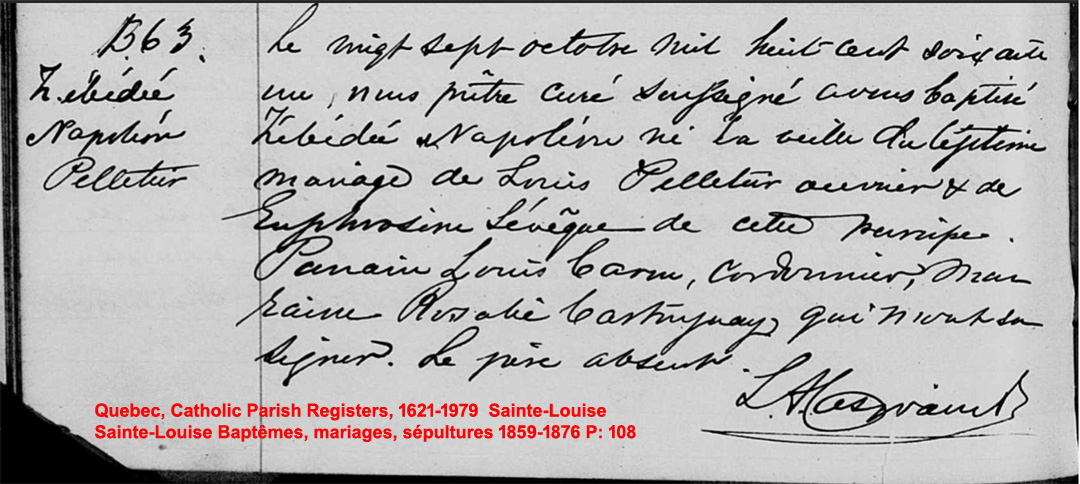 B 63.
Zébédée
Napoléon
Pelletier
Le vingt sept octobre mil huit cent soixante
une, nous prêtre curé soussigné avons baptisé
Zébédée Napoléon né la veille du légitime
mariage de Louis Pelletier ouvrier & de
Euphrosine Lévêque de cette paroisse.
Parrain Louis Caron, cordonnier, Mar
raine Rosalie Castonguay, qui n'ont su
signer. Le père absent.
Quebec, Catholic Parish Registers, 1621-1979 Sainte-Louise
Sainte-Louise Baptêmes, mariages, sépultures 1859-1876 P: 108